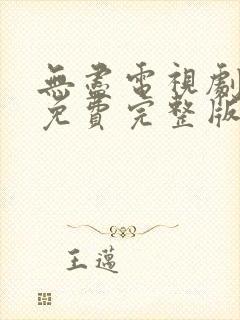 無盡電視劇
免費完整版
王邁